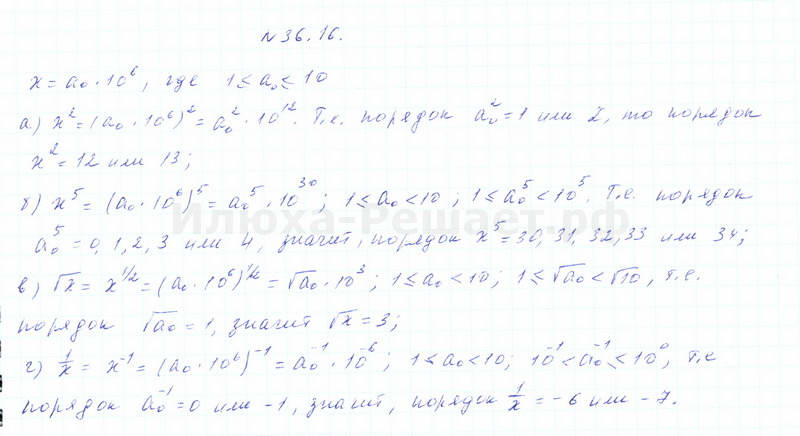 № 36.16.
x = a₀·10⁶, где 1 ≤ a₀ ≤ 10
а) x² = (a₀·10⁶)² = a₀²·10¹². Т.е. порядок a₀² = 1 или 2, то порядок
x² = 12 или 13;
б) x⁵ = (a₀·10⁶)⁵ = a₀⁵·10³⁰; 1 ≤ a₀ < 10; 1 ≤ a₀⁵ < 10⁵. Т.е. порядок
Илюха-Решает.рф
a₀⁵ = 0, 1, 2, 3 или 4, значит, порядок x⁵ = 30, 31, 32, 33 или 34;
в) √x = x^(1/2) = (a₀·10⁶)^(1/2) = √a₀·10³; 1 ≤ a₀ < 10; 1 ≤ √a₀ < √10, т.е.
порядок √a₀ = 1, значит √x = 3;
г) 1/x = x⁻¹ = (a₀·10⁶)⁻¹ = a₀⁻¹·10⁻⁶; 1 ≤ a₀ < 10; 10⁻¹ < a₀⁻¹ ≤ 10⁰, т.е
порядок a₀⁻¹ = 0 или -1, значит, порядок 1/x = -6 или -7.